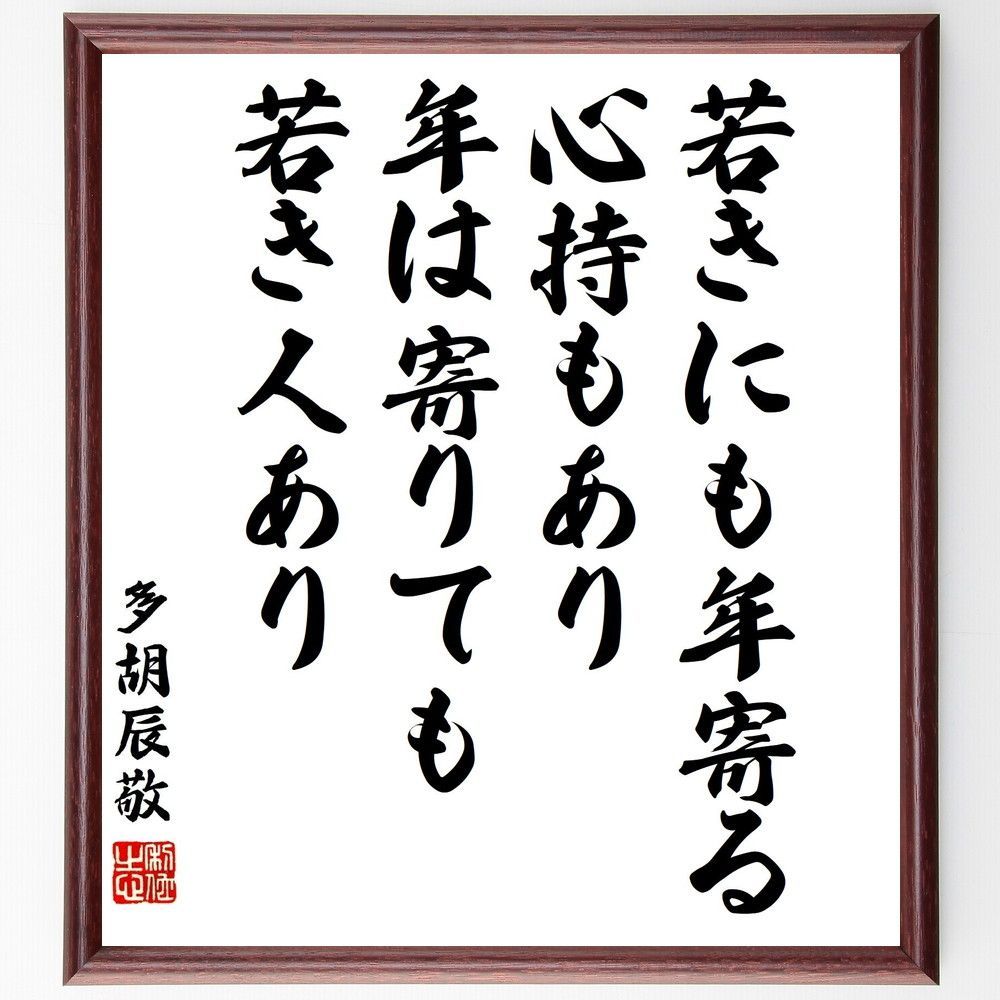 若きにも年寄る
心持もあり
年は寄りても
若き人あり
多胡辰敬